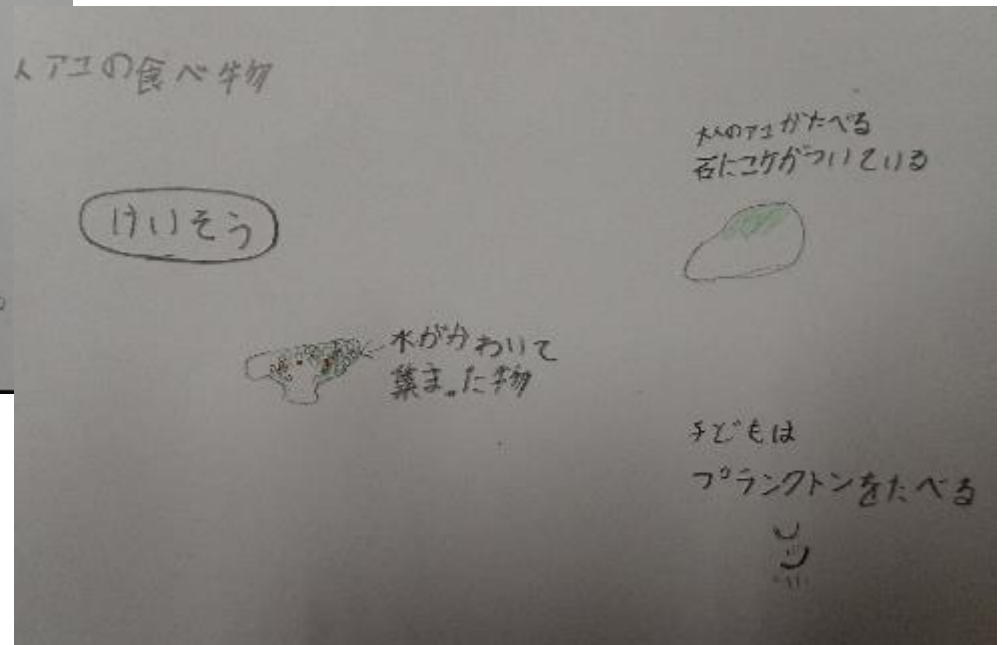 アユの食べ物
大人のアユがたべる
石にコケがついている
けいそう
水がかわいて
集まった物
子どもは
プランクトンをたべる